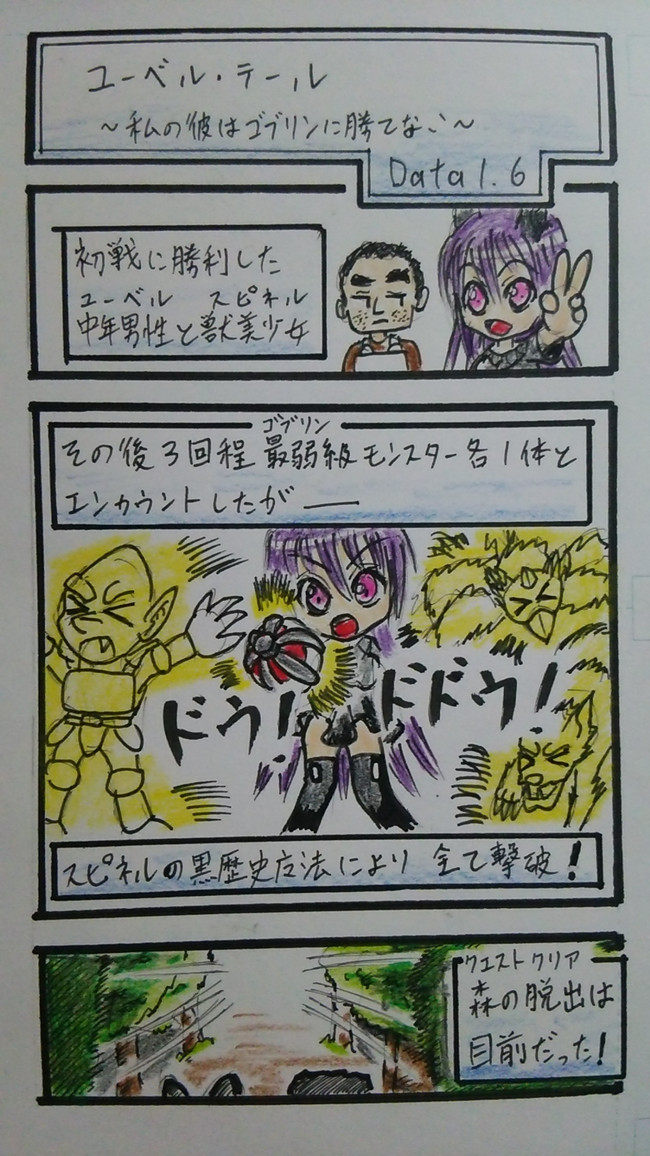 ユーベル・テール
～私の彼はゴブリンに勝てない～
Data 1.6
初戦に勝利した
ユーベル スピネル
中年男性と獣美少女
ゴブリン
その後3回程最弱級モンスター各1体と
エンカウントしたが――
ドウ！
ドドウ！
スピネルの黒歴史魔法により 全て撃破！
クエストクリア
森の脱出は
目前だった！